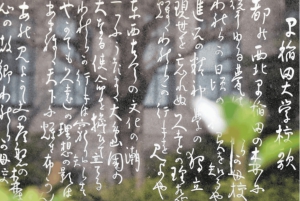 早稲田大学校歌
都の西北早稲田の森に
聳ゆる甍は 母校
われらが日頃の 知るや
進取の精神 学の独立
現世を忘れぬ 久遠の理想
われらが行手を見よや
東西古今の 文化の潮
一つに渦巻く 大島国の
大なる使命を 担ひて立てる
われらが行手は 窮り
やがても久遠の 理想の影は
あまねく天下に 輝き布
あれ見よかしこの 常磐の森
心の故郷 われらが母校